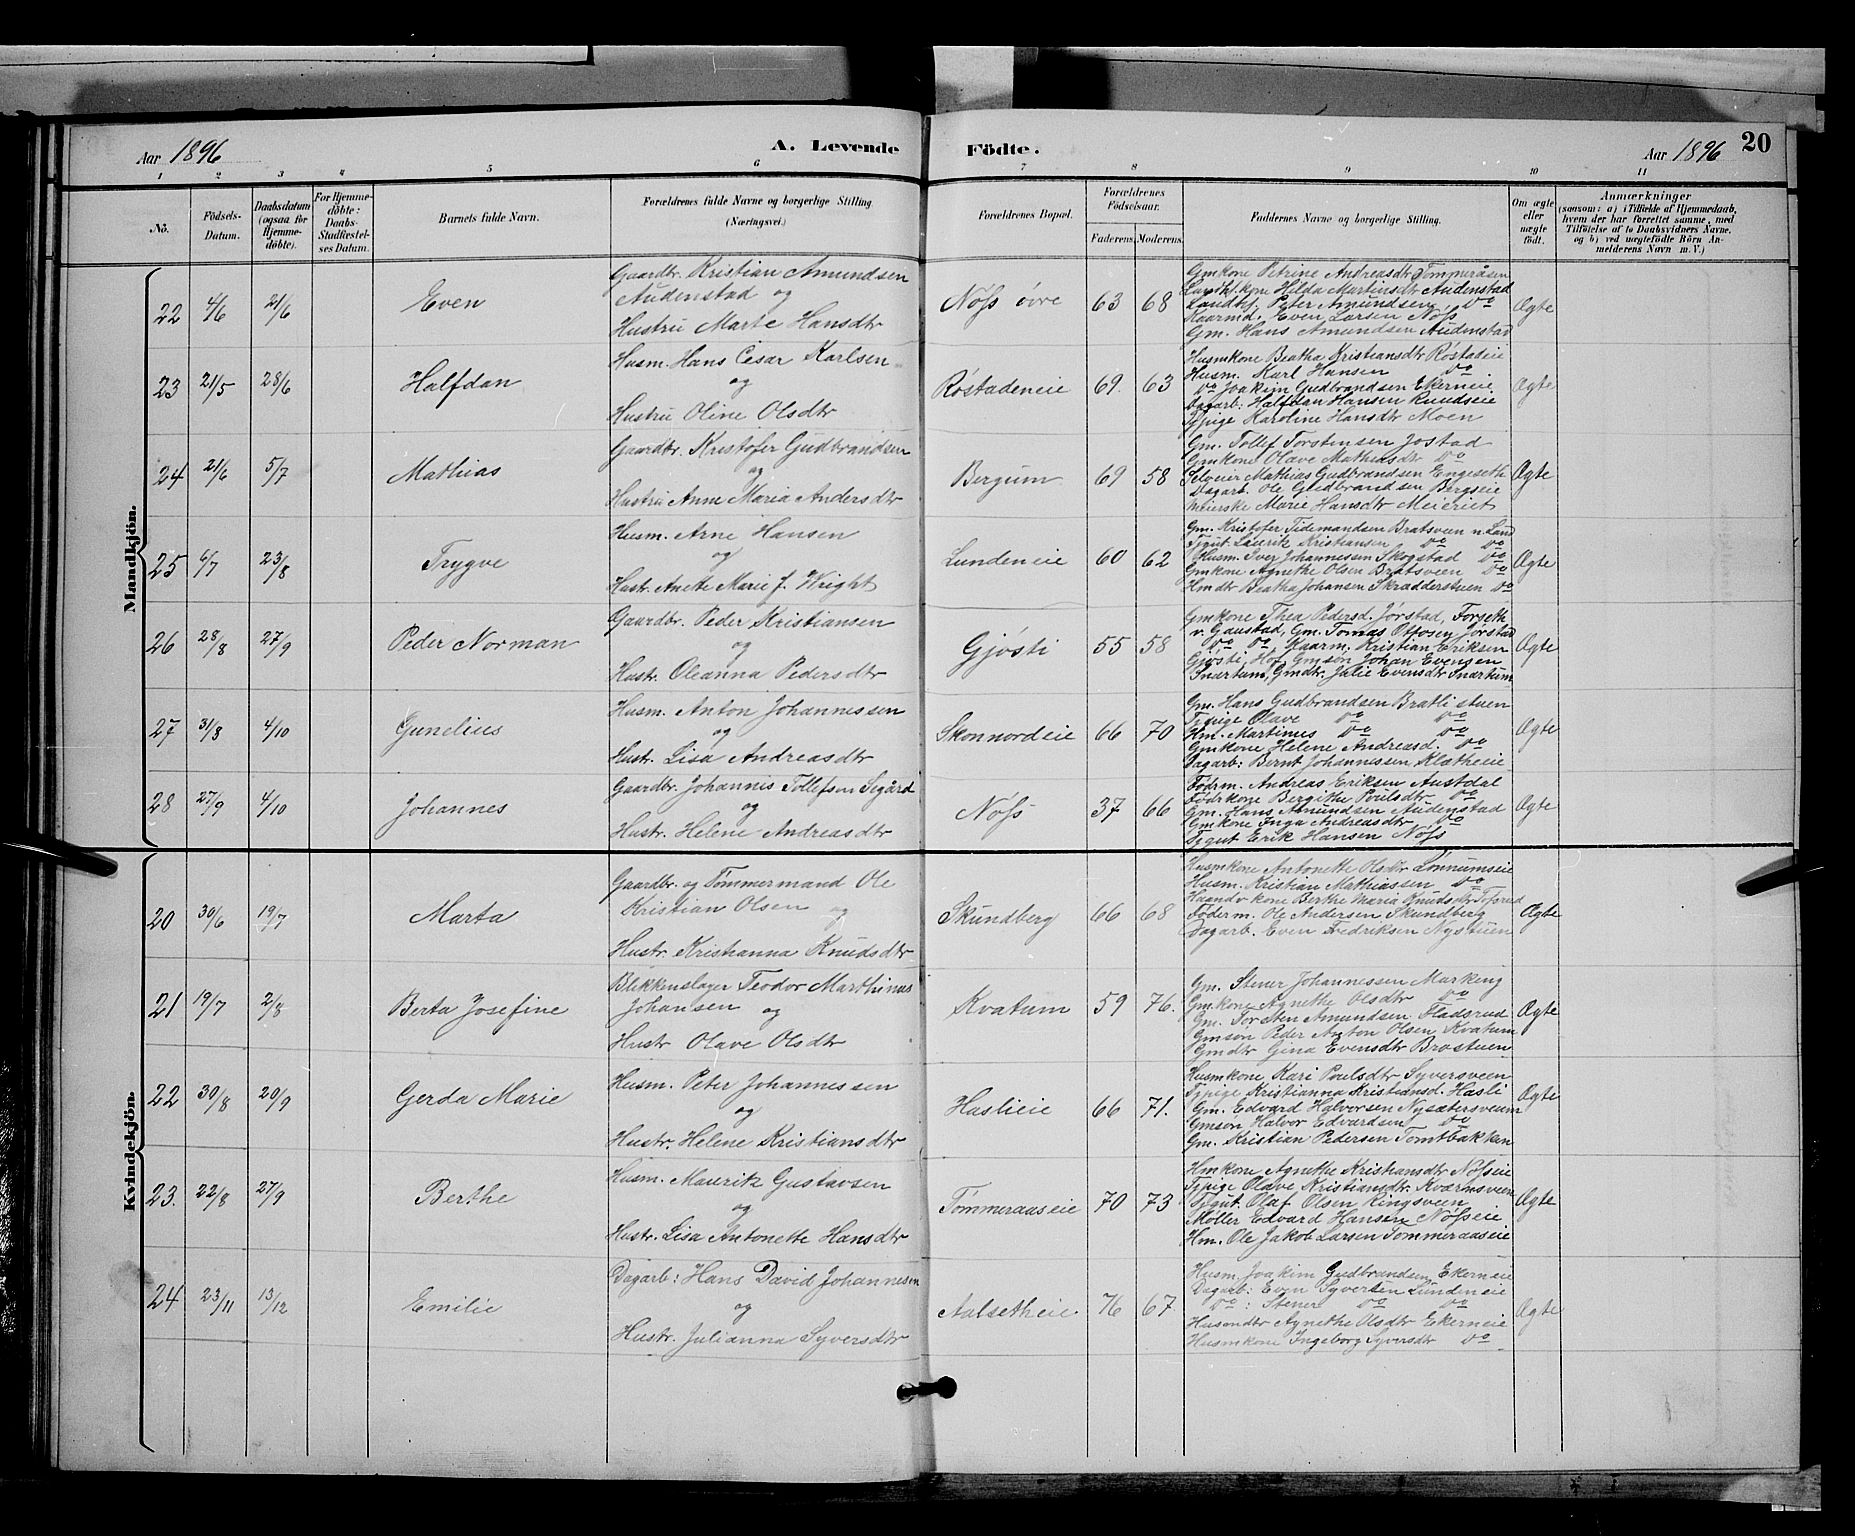 Aar 1896
A. Levende Födte.
Aar 1896 20
1 2 3 4 5 6 7 8 9 10 11
No.
Födsels-Datum.
Daabsdatum (ogsaa for Hjemmedöbte).
For Hjemmedöbte: Daabs-Stadfæstelses Datum.
Barnets fulde Navn.
Forældrenes fulde Navne og borgerlige Stilling. (Næringsvei.)
Forældrenes Bopæl.
Forældrenes Födselsaar.
Faderens. Moderens.
Faddernes Navne og borgerlige Stilling.
Om ægte eller uægte födt.
Anmærkninger
(saasom: a) i Tilfælde af Hjemmedaab, hvem der har forrettet samme, med Tilföielse af to Daabsvidners Navne, og b) ved uægtefödte Börn Anmelderens Navn m. V.)
Mandkjön.
22 4/6 21/6 Even
Gaardbr. Kristian Amundsen
Audenstad og
Hustru Marte Hansdtr
Nöss övre 63 68
Gmkone Petrine Andreasdtr Tömmeråsen
Landh.kone Hilda Martinsdtr Audenstad
Landhj. Peter Amundsen Do
Kaarmd. Even Larsen Nöss
Gm. Hans Amundsen Audenstad
Ægte
23 21/5 28/6 Halfdan
Husm. Hans Cesar Karlsen
og
Hustru Oline Olsdtr
Röstadeneie 69. 63
Husmkone Beatha Kristiansdtr Röstadeie
Husm. Karl Hansen Do
Do Joakim Gudbrandsen Ekerneie
Dagarb: Halfdan Hansen Rundseie
Tjpige Karoline Hansdtr Moen
Ægte
24 21/6 5/7 Mathias
Gaardbr. Kristofer Gudbrandsen
og
Hustru Anne Maria Andersdtr
Bergum 69 58
Gm. Tollef Torstensen Jostad
Gmkone Olave Mathiasdtr Do
Selveier Mathias Gudbrandsen Engeseth
Dagarb. Ole Gudbrandsen Bergseie
Meierske Marie Hansdtr Meieriet
Ægte
25 6/7 23/8 Trygve
Husm. Arne Hansen
og
Hustr. Anette Marie J. Wright
Lundeneie 60 62
Gm. Kristofer Tidemandsen Bratsveen n. Land
Tjgut Laurik Kristiansen Do Do
Husm. Iver Johannessen Skogstad Do
Gmkone Agnethe Olsen Bratsveen Do
Hmdtr Beatha Johansen Skradderstuen Do
Ægte
26 28/8 27/9 Peder Norman
Gaardbr. Peder Kristiansen
og
Hustr. Oleanna Pedersdtr
Gjösti 55 58
Gmkone Thea Pedersd. Jörstad, Forseth
v. Gaustad, Gm. Tomas Ottosen Jörstad
Do Do, Kaarm. Kristian Eriksen
Gjösti, Hof, Gmsön Johan Evensen
Snærtum, Gmdtr. Julie Evensdtr Snærtum
Ægte
27 31/8 4/10 Gunelius
Husm. Anton Johannessen
og
Hustr. Lisa Andreasdtr
Skonnordeie 66 70
Gm. Hans Gudbrandsen Bratlistuen
Tjpige Olave Do Do
Hm. Martinus Do Do
Gmkone Helene Andreasd. Do
Dagarb: Bernt Johannessen Klætheie
Ægte
28 27/9 4/10 Johannes
Gaardbr. Johannis Tollefsen Segård
og
Hustr. Helene Andreasdtr
Nöss 37 66
Födrm. Andreas Eriksen Austdal
Födrkone Bergithe Poulsdtr Do
Gm. Hans Amundsen Audenstad
Gmkone Inga Andreasdtr Do
Tjgut Erik Hansen Nöss
Ægte
Kvindekjön.
20 30/6 19/7 Marta
Gaardbr. og Tömmermand Ole
Kristian Olsen og
Hustr. Kristianna Knudsdtr
Skundberg 66 68
Husmkone Antonette Olsdtr Lönnumseie
Husm. Kristian Mathiassen Do
Haandv.kone Berthe Maria Knudsdtr Tofsrud
Föderm. Ole Andersen Skundberg
Dagarb. Even Fredriksen Nystuen
Ægte
21 19/7 2/8 Berta Josefine
Blikkenslager Teodor Marthinus
Johansen og
Hustr Olave Olsdtr
Kvatum 59 76.
Gm. Stener Johannessen Marking
Gmkone Agnethe Olsdtr Do
Gm. Torsten Amundsen Fladsrud
Gmsön Peder Anton Olsen Kvatum
Gmdtr Gina Evensdtr Brostuen
Ægte
22 30/8 20/9 Gerda Marie
Husm. Peter Johannessen
og
Hustr. Helene Kristiansdtr
Haslieie 66 71.
Husmkone Kari Poulsdtr Syversveen
Tjpige Kristianna Kristiansd. Hasli
Gm. Edvard Halvorsen Nysætersveum
Gmsön Halvor Edvardsen Do
Gm. Kristian Pedersen Tomtbakken
Ægte
23. 22/8 27/9 Berthe
Husm. Maurik Gustavsen
og
Hustr. Lisa Antonette Hansdtr
Tömmeraaseie 70 73
Hmkone Agnethe Kristiansdtr Nösseie
Tjpige Olave Kristiansdtr. Kværnsveen
Tjgut. Olaf Olsen Ringsveen
Möller Edvard Hansen Nösseie
Hm. Ole Jakob Larsen Tömmeraaseie
Ægte
24 23/11 13/12 Emilie
Dagarb: Hans David Johannesen
og
Hustr. Julianna Syversdtr
Aalsetheie 76 67
Husm. Joakim Gudbrandsen Ekerneie
Dagarb: Even Syversen Lundeneie
Do: Stener Do Do
Husmdtr Agnethe Olsdtr Ekerneie
Husmkone Ingeborg Syversdtr Do
Ægte